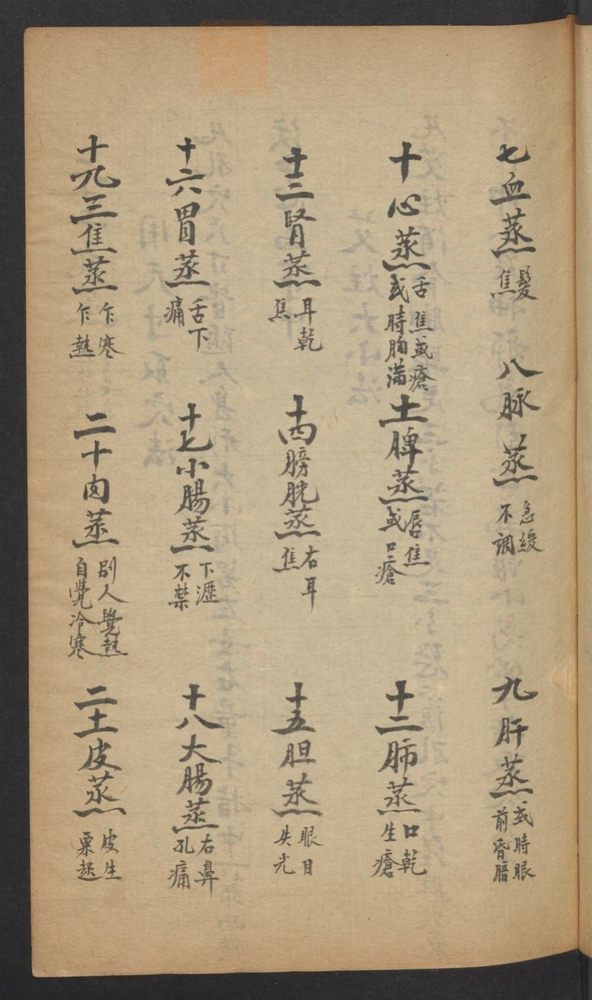 七血蒸 髮焦 八脉蒸 急緩不調 九肝蒸 或時眼前昏暗
十心蒸 舌焦或瘡或時胸满 十一脾蒸 唇焦或口瘡 十二肺蒸 口乾生瘡
十三腎蒸 耳乾焦 十四膀胱蒸 右耳焦 十五胆蒸 眼目失光
十六胃蒸 舌下痛 十七小腸蒸 下瀝不禁 十八大腸蒸 右鼻孔痛
十九三焦蒸 乍寒乍熱 二十肉蒸 别人覺热自覺冷寒 二十一皮蒸 皮生粟起